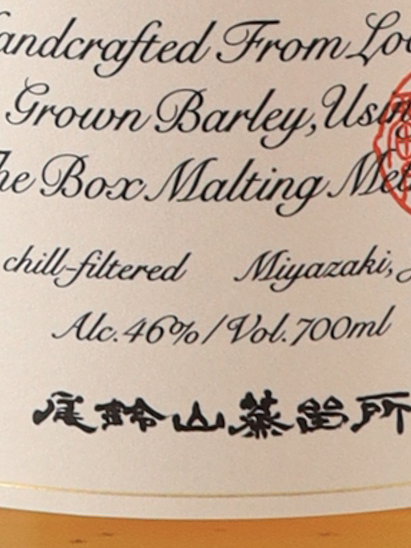 andcrafted From Loc
Grown Barley, Using
he Box Malting Met
chill-filtered Miyazaki, J
Alc.46%/Vol.700ml
尾鈴山蒸留所